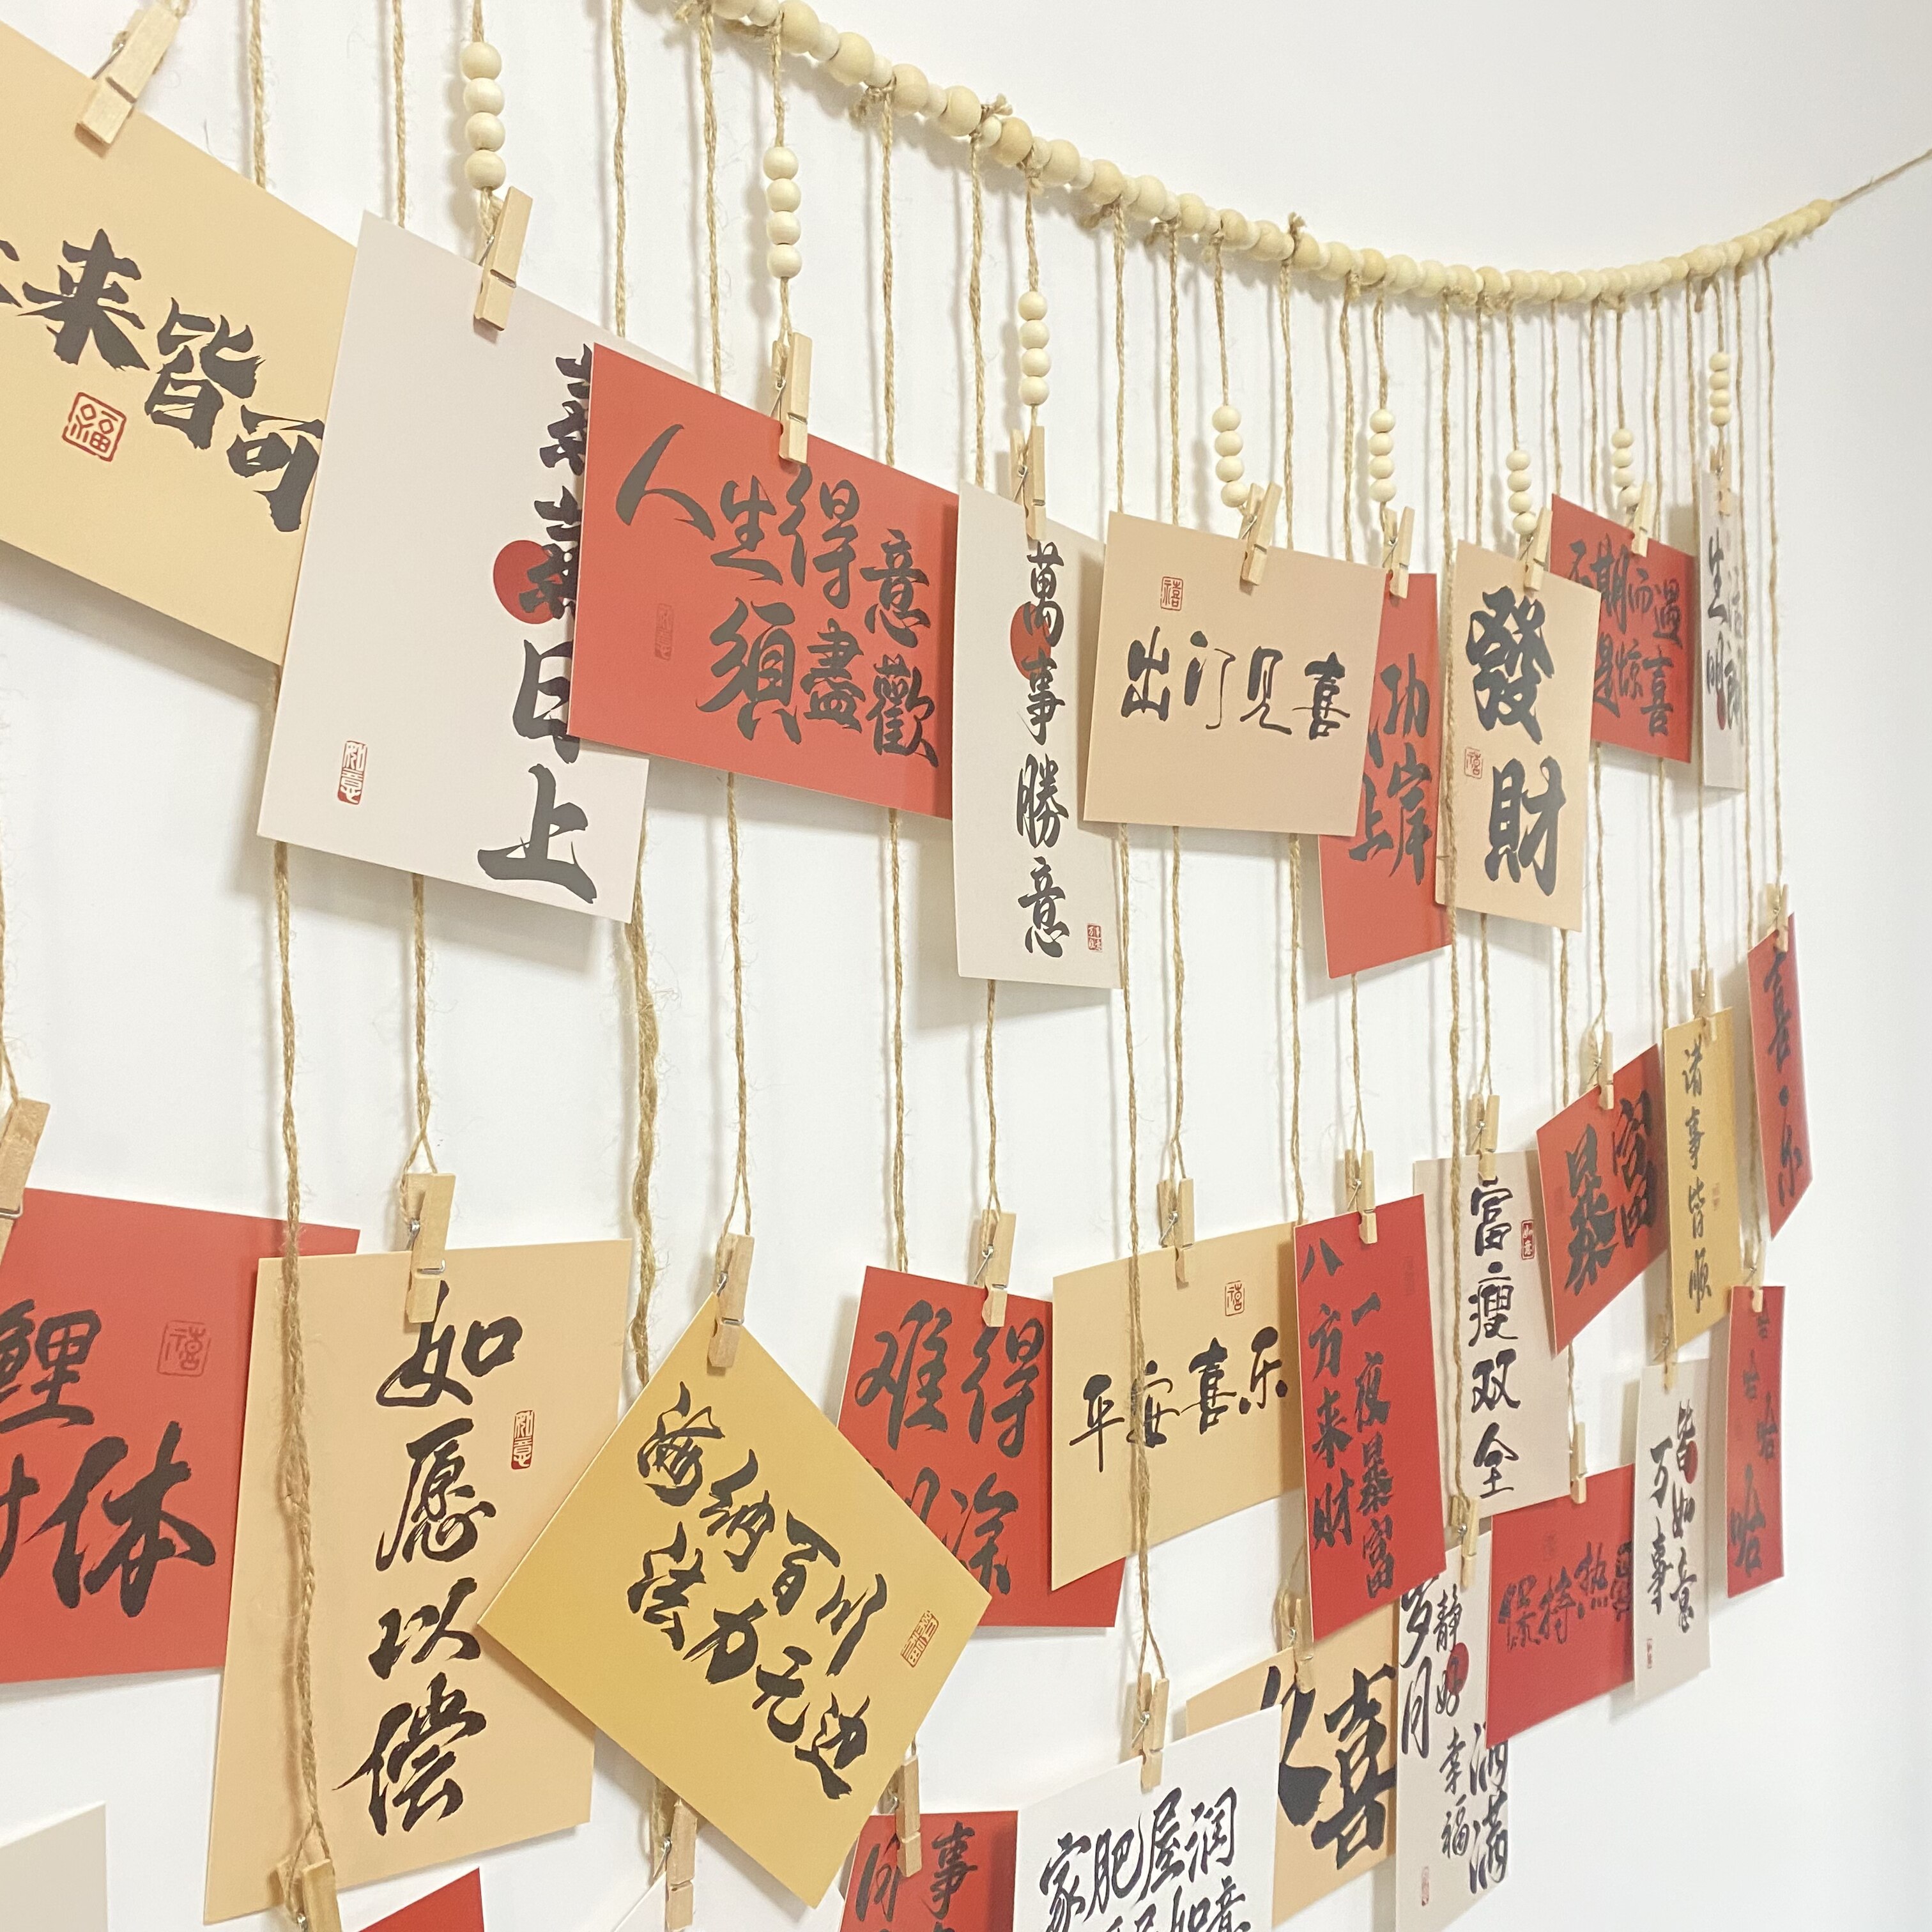 来皆可
福
蒸蒸日上
如意
人生得意
須盡歡
萬事勝意
出门见喜
禧
功
上岸
發財
禧
不期而遇
是惊喜
生活
明朗
鲤
禧
体
如愿以偿
如意
海纳百川
法力无边
难得
涂
平安喜乐
禧
八方来财
一夜暴富
富瘦双全
如意
暴富
诸事皆顺
喜
乐
哈哈哈哈
保持热
皆如意
万事
岁月静好
幸福
满满
喜
家肥屋润
如意
事